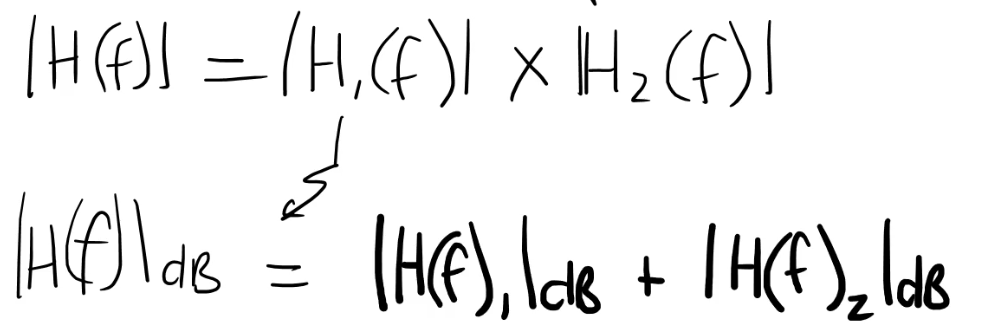 |H(f)| = |H₁(f)| × |H₂(f)|
|H(f)|dB = |H(f)₁|dB + |H(f)₂|dB